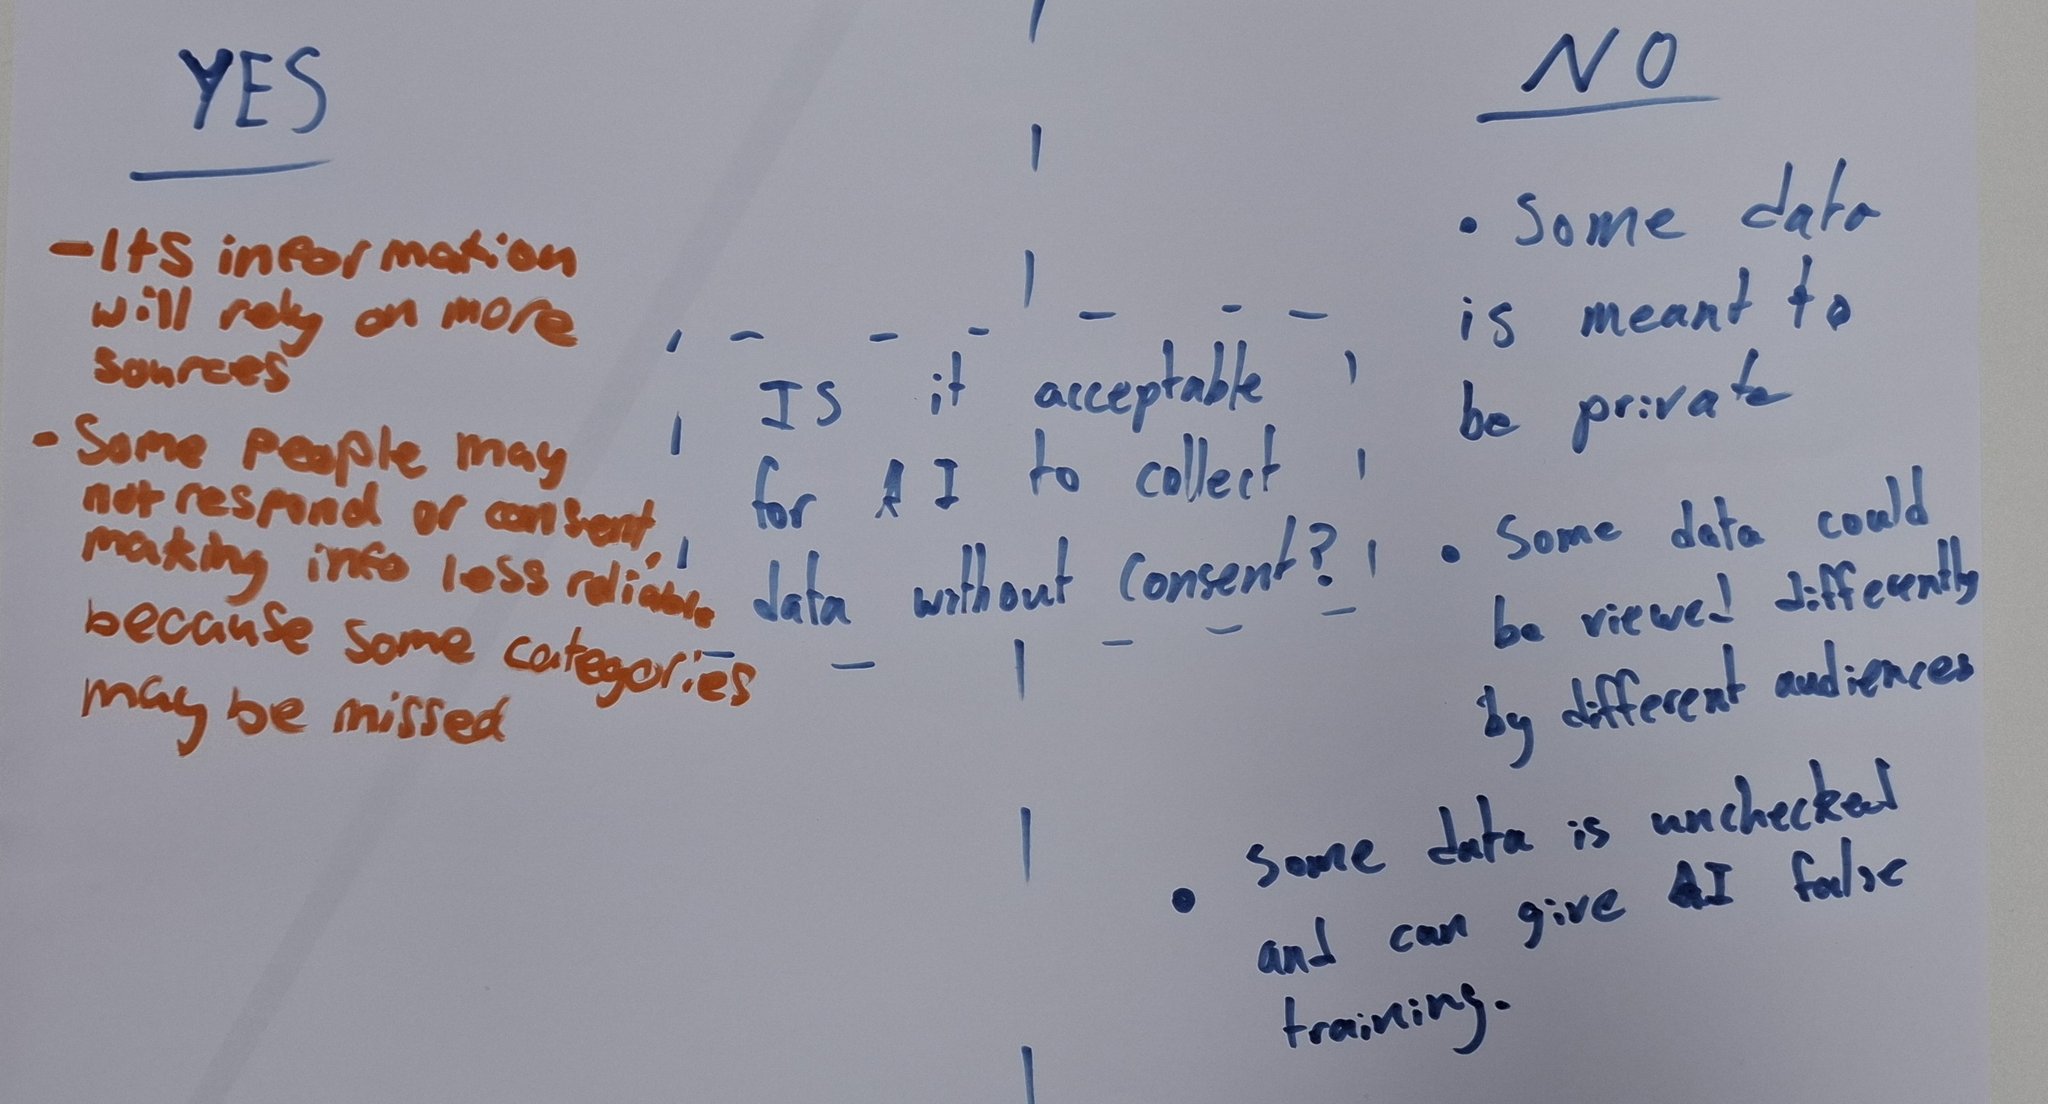 YES
-Its information
will rely on more
sources
- Some people may
not respond or consent,
making info less reliable
because some categories
may be missed
Is it acceptable
for AI to collect
data without consent?
NO
• Some data
is meant to
be private
• Some data could
be viewed differently
by different audiences
• Some data is unchecked
and can give AI false
training.